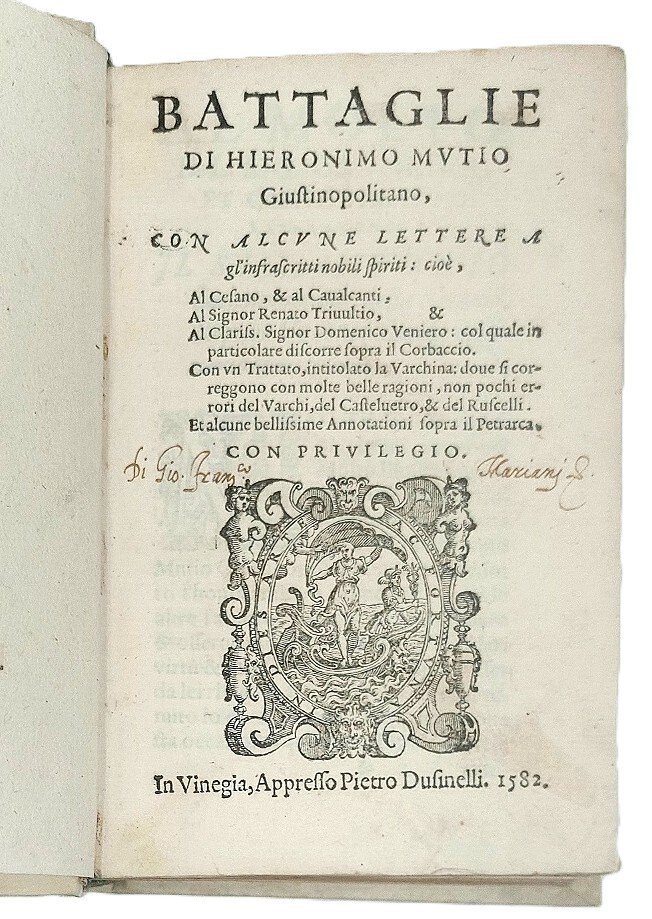 BATTAGLIE
DI HIERONIMO MVTIO
Giuſtinopolitano,
CON ALCVNE LETTERE A
gl'infraſcritti nobili ſpiriti: cioè,
Al Ceſano, & al Caualcanti,
Al Signor Renato Triuultio, &
Al Clariſs. Signor Domenico Veniero: col quale in
particolare diſcorre ſopra il Corbaccio.
Con vn Trattato, intitolato la Varchina: doue ſi cor-
reggono con molte belle ragioni, non pochi er-
rori del Varchi, del Caſteluetro, & del Ruſcelli.
Et alcune belliſsime Annotationi ſopra il Petrarca.
CON PRIVILEGIO.
Di Gio. Franc.co Mariani
INDIES ARTE AC FORTVNA
In Vinegia, Appreſſo Pietro Duſinelli. 1582.